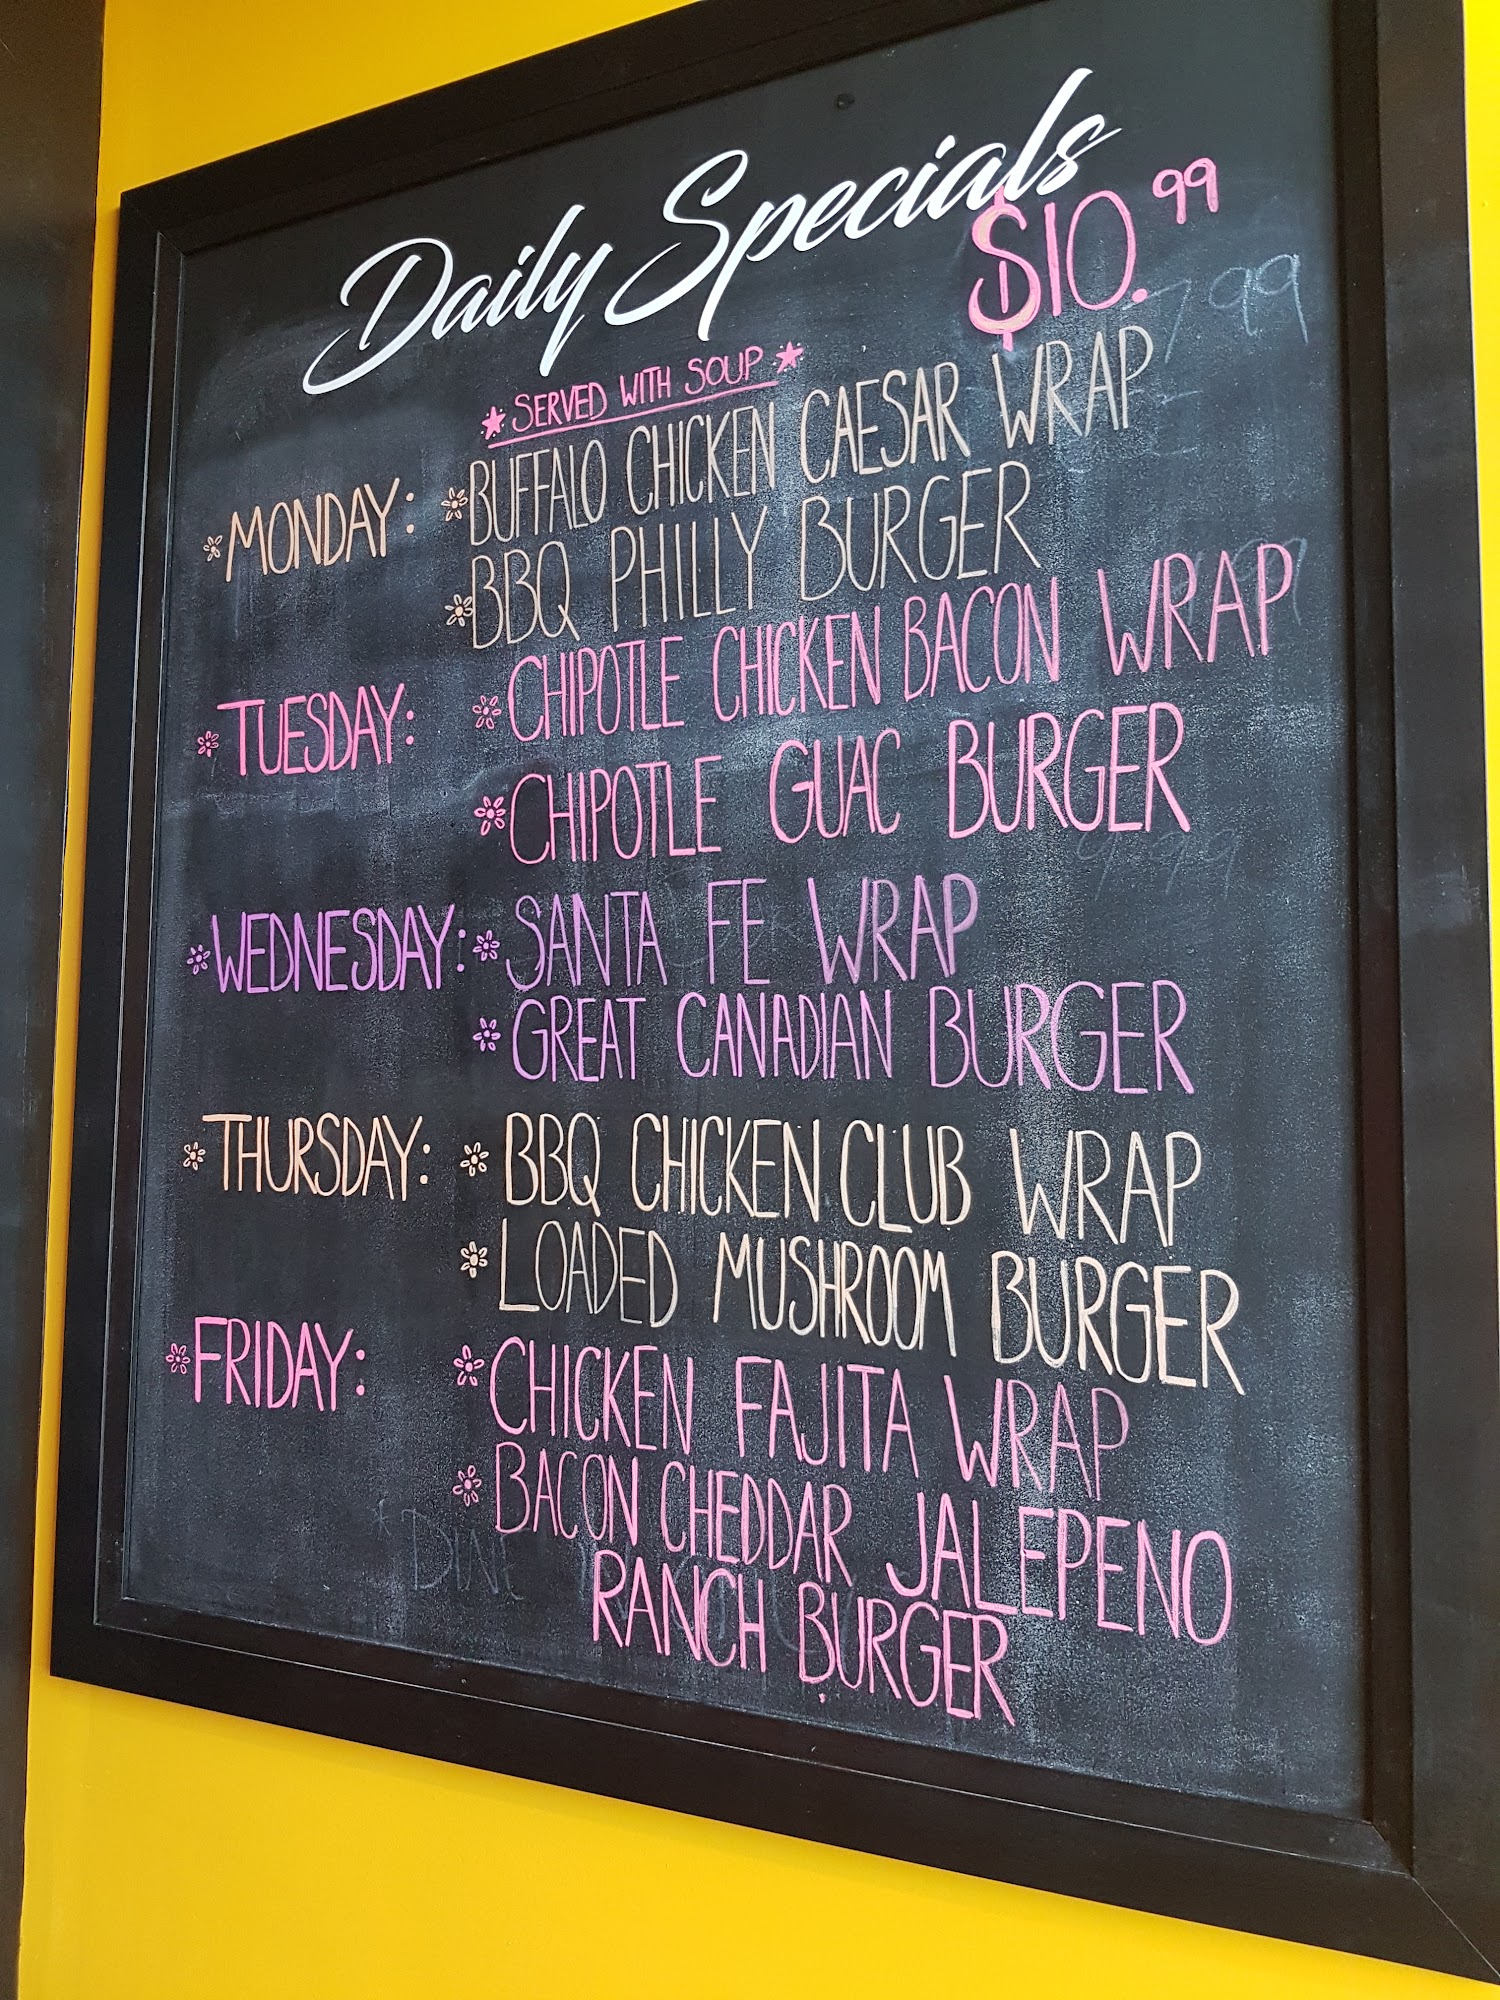 Daily Specials
$10.99
7 99
SERVED WITH SOUP
MONDAY: BUFFALO CHICKEN CAESAR WRAP
BBQ PHILLY BURGER
TUESDAY: CHIPOTLE CHICKEN BACON WRAP
CHIPOTLE GUAC BURGER
9.99
WEDNESDAY: SANTA FE WRAP
GREAT CANADIAN BURGER
THURSDAY: BBQ CHICKEN CLUB WRAP
LOADED MUSHROOM BURGER
FRIDAY: CHICKEN FAJITA WRAP
BACON CHEDDAR JALEPENO
RANCH BURGER
*DINE